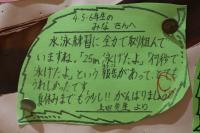 4・5・6年生の
みなさんへ
水泳練習に全力で取り組んで
いますね。「25m泳げたよ」「何秒で
泳げたよ」という報告があって、とても
うれしかったです。
夏休みまでもう少し!!がんばりましょう
上田先生より